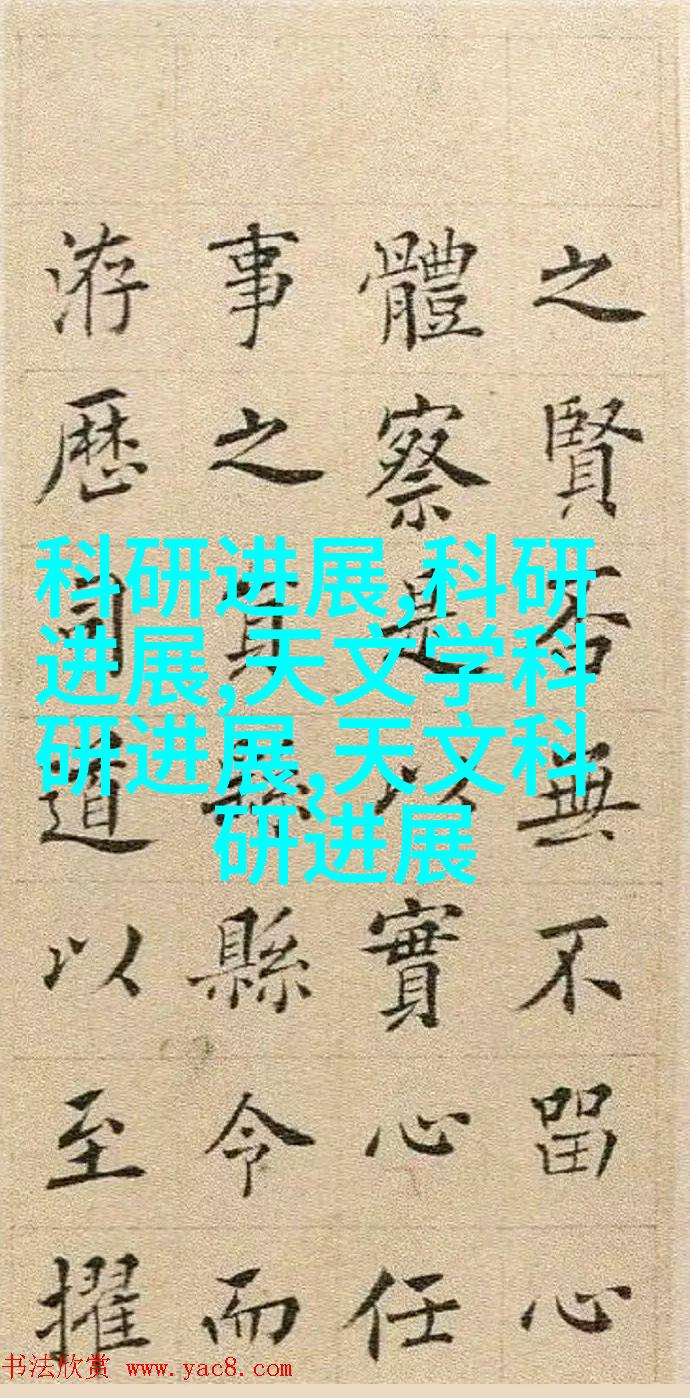 科研进展,科研
进展,天文学科
研进展,天文科
研进展
之賢否無不畱心
體察是以實心任
事之縣令而
洊歷司道以至擢
书法欣赏 www.yac8.com